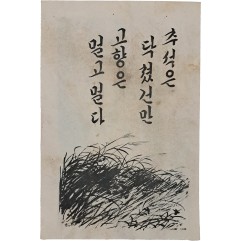 추석은
닥쳤건만
고향은
멀고 멀다